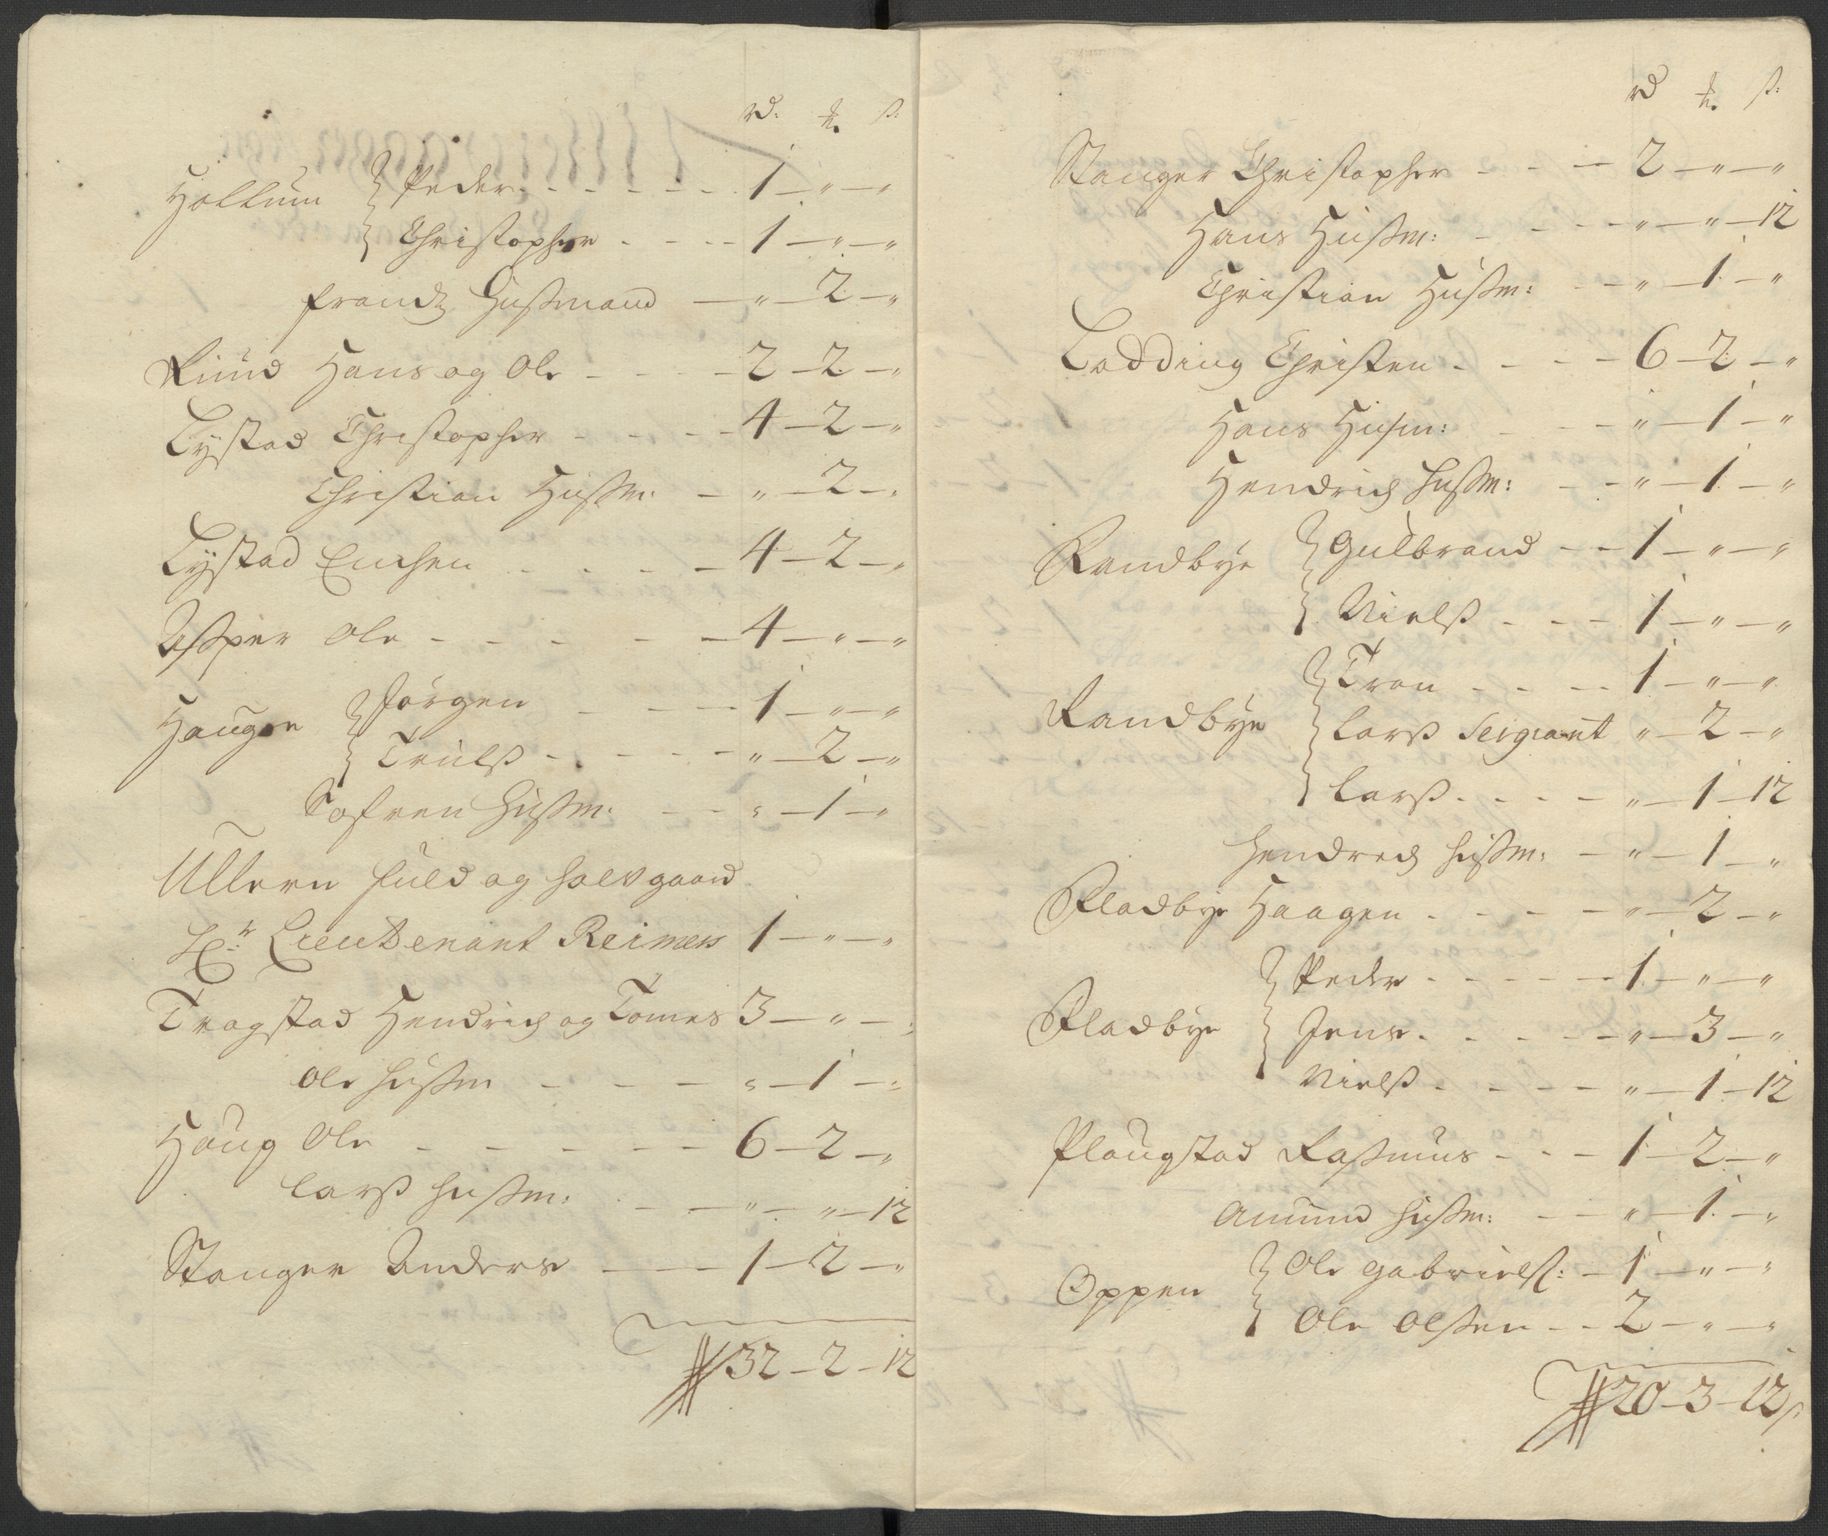 rd: ₰. ß:
Hollum { Peder - - - - - - 1 - " - "
{ Christopher - - - - 1 - " - "
frandz Husmand - " - 2 - "
Ruud Hans og Ole - - - - 2 - 2 - "
Lystad Christopher - - - - 4 - 2 - "
Christian Hussm: - " - 2 - "
Lystad Enchen - - - - 4 - 2 - "
Asper Ole - - - - - - 4 - " - "
Haugen { Jörgen - - - - 1 - " - "
{ Trulß - - - - - " - 2 - "
Sofren Hussm: - - " - 1 - "
Ullern fuld og halvgaard
Hr: Lieutenant Reimers 1 - " - "
Tragstad Hendrich og Tomes 3 - " - "
Ole hussm - - - - " - 1 - "
Haug Ole - - - - - - 6 - 2 - "
Larß hussm: - - - " - " - 12
Stanger Anders - - - - 1 - 2 - "
32 - 2 - 12
rd ₰. ß:
Stanger Christopher - - - - 2 - " - "
Hans Hussm: - - - - " - " - 12
Christian Hussm: - - " - 1 - "
Lodding Christen - - - - 6 - 2 - "
Hans Husm: - - - " - 1 - "
Hendrich hussm: - - " - 1 - "
Randbye { Gulbrand - - 1 - " - "
{ Nielß - - - - 1 - " - "
Randbye { Tron - - - - 1 - " - "
{ Larß Sergiant " - 2 - "
{ Larß - - - - " - 1 - 12
Hendrech hussm: - " - 1 - "
Fladbye Haagen - - - - " - 2 - "
Fladbye { Peder - - - - - 1 - " - "
{ Jens - - - - - " - 3 - "
Nielß - - - - - " - 1 - 12
Plougstad Rasmus - - - 1 - 2 - "
Amund hussm: - - " - 1 - "
Oppen { Ole Gabrielß: - 1 - " - "
{ Ole Olssen - - 2 - " - "
20 - 3 - 12 ß